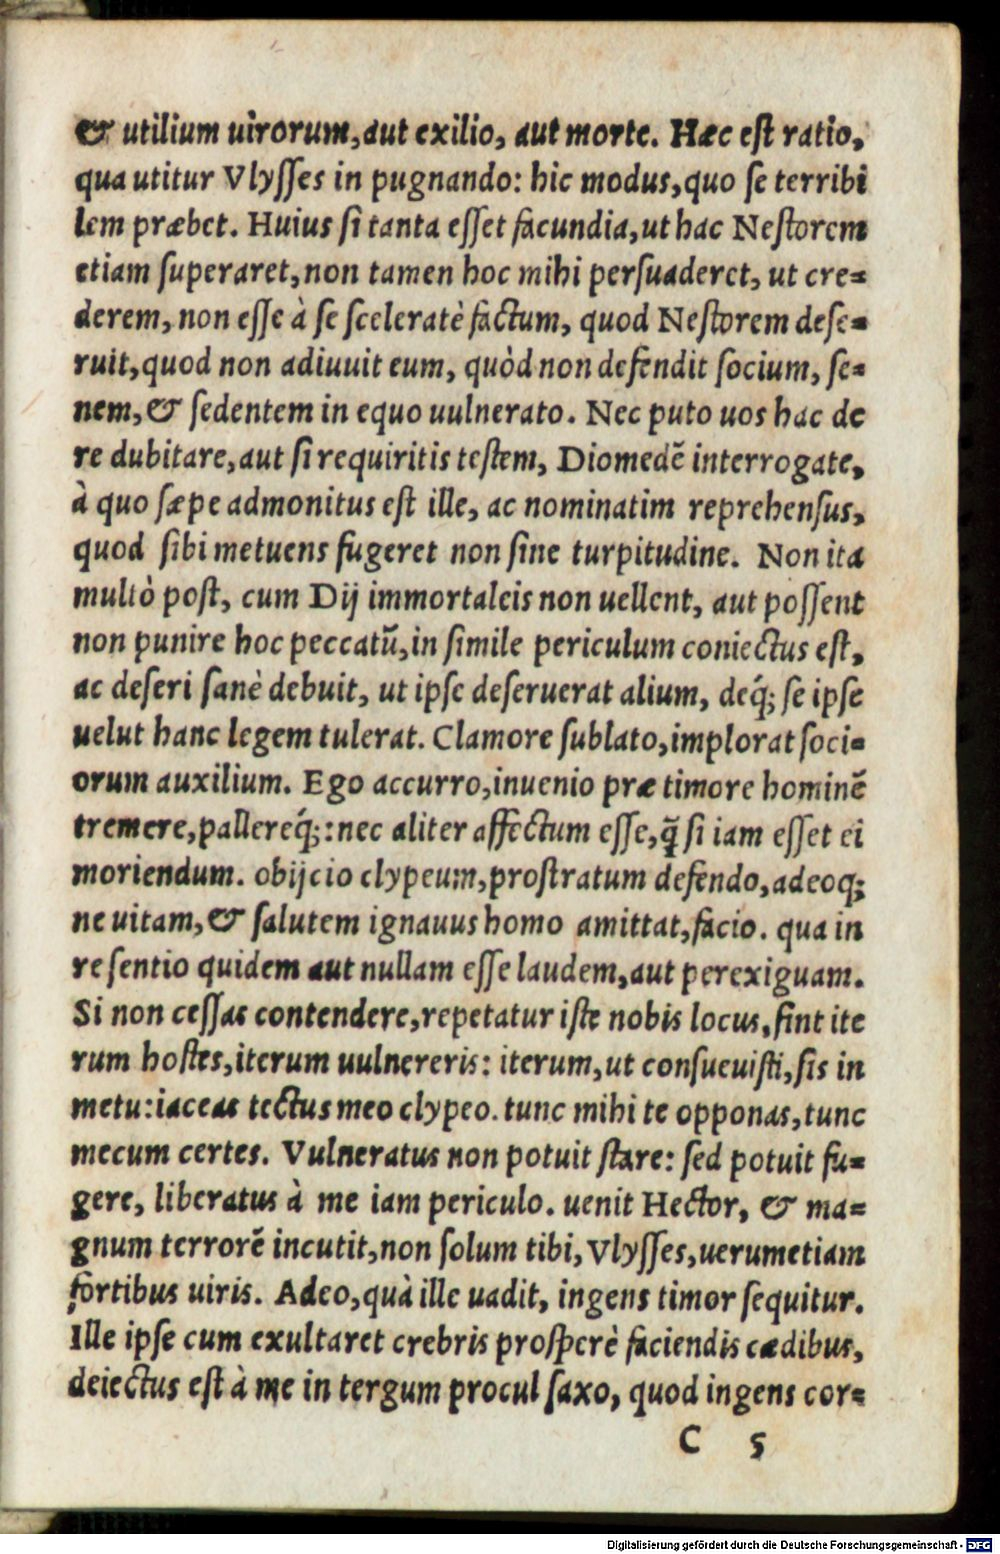 & utilium uirorum, aut exilio, aut morte. Hæc est ratio,
qua utitur Vlysses in pugnando: hic modus, quo se terribi
lem præbet. Huius si tanta esset facundia, ut hac Nestorem
etiam superaret, non tamen hoc mihi persuaderet, ut cre=
derem, non esse à se sceleratè factum, quod Nestorem dese=
ruit, quod non adiuuit eum, quòd non defendit socium, se=
nem, & sedentem in equo uulnerato. Nec puto uos hac de
re dubitare, aut si requiritis testem, Diomedē interrogate,
à quo sæpe admonitus est ille, ac nominatim reprehensus,
quod sibi metuens fugeret non sine turpitudine. Non ita
multò post, cum Dij immortaleis non uellent, aut possent
non punire hoc peccatū, in simile periculum coniectus est,
ac deseri sanè debuit, ut ipse deseruerat alium, deq́; se ipse
uelut hanc legem tulerat. Clamore sublato, implorat soci=
orum auxilium. Ego accurro, inuenio præ timore hominē
tremere, pallereq́;: nec aliter affectum esse, q̄ si iam esset ei
moriendum. obijcio clypeum, prostratum defendo, adeoq;
ne uitam, & salutem ignauus homo amittat, facio. qua in
re sentio quidem aut nullam esse laudem, aut perexiguam.
Si non cessas contendere, repetatur iste nobis locus, sint ite
rum hostes, iterum uulnereris: iterum, ut consueuisti, sis in
metu: iaceas tectus meo clypeo. tunc mihi te opponas, tunc
mecum certes. Vulneratus non potuit stare: sed potuit fu=
gere, liberatus à me iam periculo. uenit Hector, & ma=
gnum terrorē incutit, non solum tibi, Vlysses, uerumetiam
fortibus uiris. Adeo, quà ille uadit, ingens timor sequitur.
Ille ipse cum exultaret crebris prosperè faciendis cædibus,
deiectus est à me in tergum procul saxo, quod ingens cor=
C 5
Digitalisierung gefördert durch die Deutsche Forschungsgemeinschaft - DFG